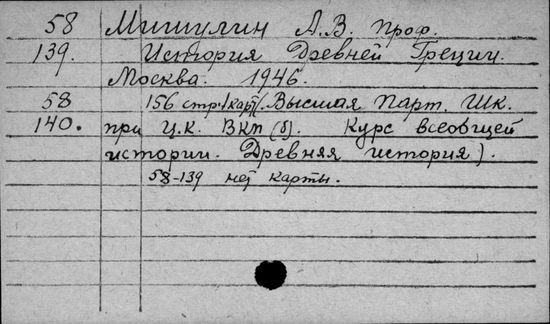 58 Мишулин А.В. проф.
139. История Древней Греции.
Москва. 1946.
58 156 стр./карт/. Высшая Парт. Шк.
140. при Ц.К. ВКП(б). Курс всеобщей
истории. Древняя история).
58-139 нет карты.